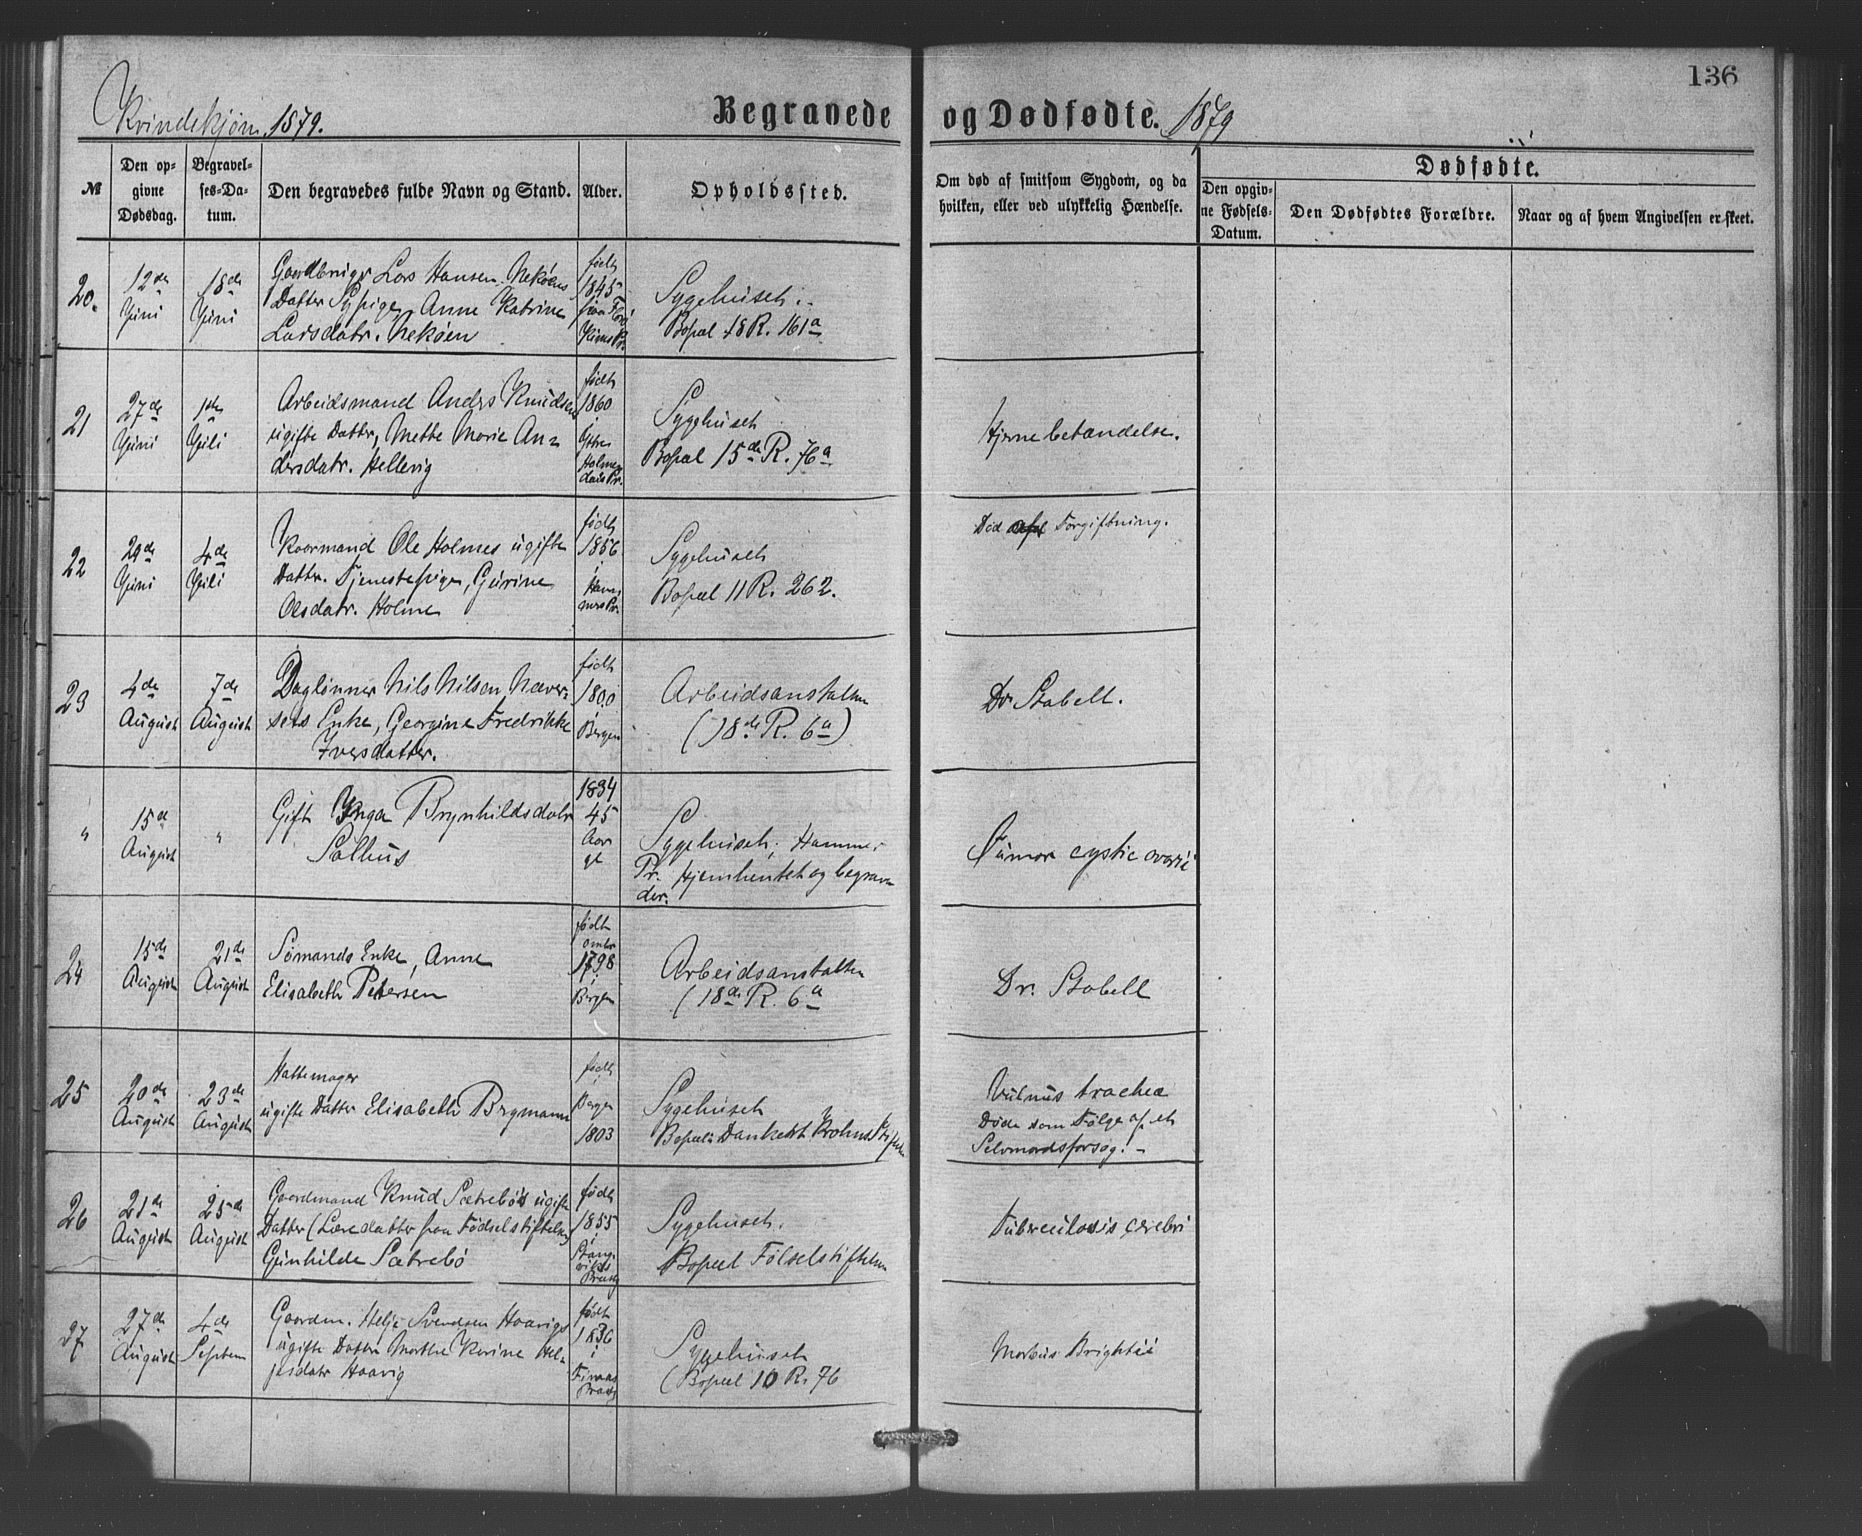 136
Kvindekjøn. 1879.
Begravede og Dødfødte. 1879
№
Den op-
givne
Dødsdag.
Begravel-
ses-Da-
tum.
Den begravedes fulde Navn og Stand.
Alder.
Opholdssted.
Om død af smitsom Sygdom, og da
hvilken, eller ved ulykkelig Hændelse.
Dødfødte.
Den opgiv-
ne Fødsels-
Datum.
Den Dødfødtes Forældre.
Naar og af hvem Angivelsen er skeet.
20.
12de
Juni
18de
Juni
Gaardbruger Lars Hansen Nekøens
Datter Sypige, Anne Katrine
Larsdatr. Nekøen
født
1845
paa Florø
Kinns Pr.
Sygehuset.
Bopæl 18 R. 161a
21
27de
Juni
1ste
Juli
Arbeidsmand Anders Knudsen
ugifte Datter, Mette Marie An-
dersdatr. Hellevig
født
1860
i
Ytre
Holme-
dals Pr.
Sygehuset
Bopæl 15de R. 76a
Hjernebetændelse.
22
29de
Juni
4de
Juli
Kaarmand Ole Holmes ugifte
Datter. Tjenestepige, Gurine
Olsdatr. Holme
født
1856
i
Ham-
mers Pr.
Sygehuset
Bopæl 11 R. 262.
Død af Forgiftning.
23
4de
August
7de
August
Daglønner Nils Nilsen Næver-
sets Enke, Georgine Fredrikke
Iversdatter.
født
1800
i
Bergen
Arbeidsanstalten
(18de R. 6a)
Dr. Stabell.
"
15de
August
"
Gift Inga Brynhildsdatr
Salhus
1834
45
Aar
gl
Sygehuset, Hammer
Pr. Hjemhentet og begraven
der.
Tumor cystic ovarii
24
15de
August
21de
August
Sømands Enke, Anne
Elisabeth Petersen
født
omtr
1798
i
Bergen
Arbeidsanstalten
(18de R. 6a
Dr. Stabell
25
20de
August
23de
August
Hattemager
ugifte Datter Elisabeth Bergmann
født
i
Bergen
1803
Sygehuset
Bopæl: Dankert Krohns Stiftelse
Vulnus trachea
Døde som Følge af et
Selvmordsforsøg. -
26
21de
August
25de
August
Gaardmand Knud Sætrebøs ugifte
Datter (Læredatter paa Fødselsstiftelsen)
Gunhilde Sætrebø
født
1855
i
Stang-
viks
Præstg
Sygehuset.
Bopæl Fødselsstiftelsen
Tuberculosis cerebri
27
27de
August
4de
Septem
Gaardm. Helje Svendsen Haavigs
ugifte Datter Marthe Karine Hel-
jesdatr Haavig
født
1836
i
Finaas
Præstg
Sygehuset
(Bopæl 10 R. 76
Morbus Brightii